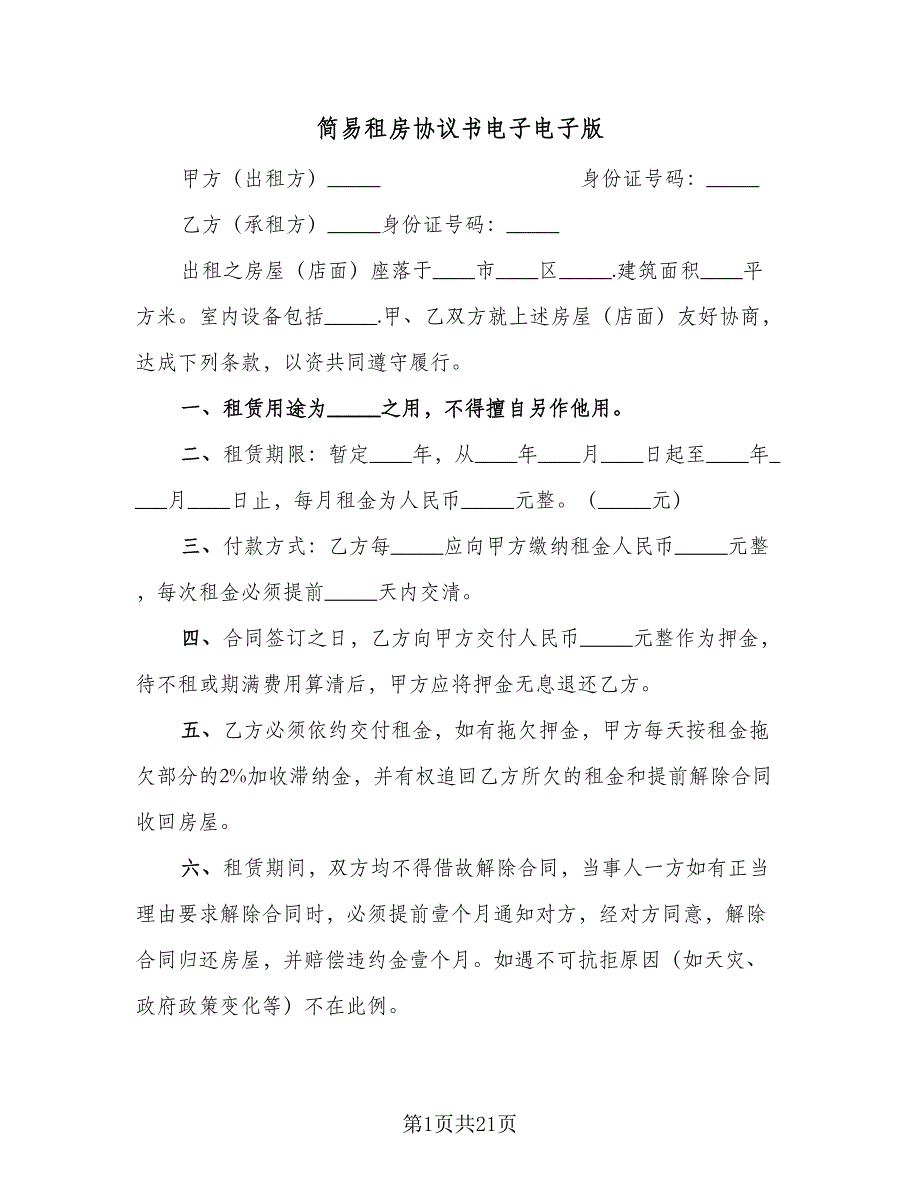 简易租房协议书电子电子版
甲方（出租方）_____ 身份证号码：_____
乙方（承租方）_____身份证号码：_____
出租之房屋（店面）座落于____市____区_____.建筑面积____平
方米。室内设备包括_____.甲、乙双方就上述房屋（店面）友好协商，
达成下列条款，以资共同遵守履行。
一、租赁用途为_____之用，不得擅自另作他用。
二、租赁期限：暂定____年，从____年____月____日起至____年_
___月____日止，每月租金为人民币_____元整。（_____元）
三、付款方式：乙方每_____应向甲方缴纳租金人民币_____元整
，每次租金必须提前_____天内交清。
四、合同签订之日，乙方向甲方交付人民币_____元整作为押金，
待不租或期满费用算清后，甲方应将押金无息退还乙方。
五、乙方必须依约交付租金，如有拖欠押金，甲方每天按租金拖
欠部分的2%加收滞纳金，并有权追回乙方所欠的租金和提前解除合同
收回房屋。
六、租赁期间，双方均不得借故解除合同，当事人一方如有正当
理由要求解除合同时，必须提前壹个月通知对方，经对方同意，解除
合同归还房屋，并赔偿违约金壹个月。如遇不可抗拒原因（如天灾、
政府政策变化等）不在此例。
第1页共21页